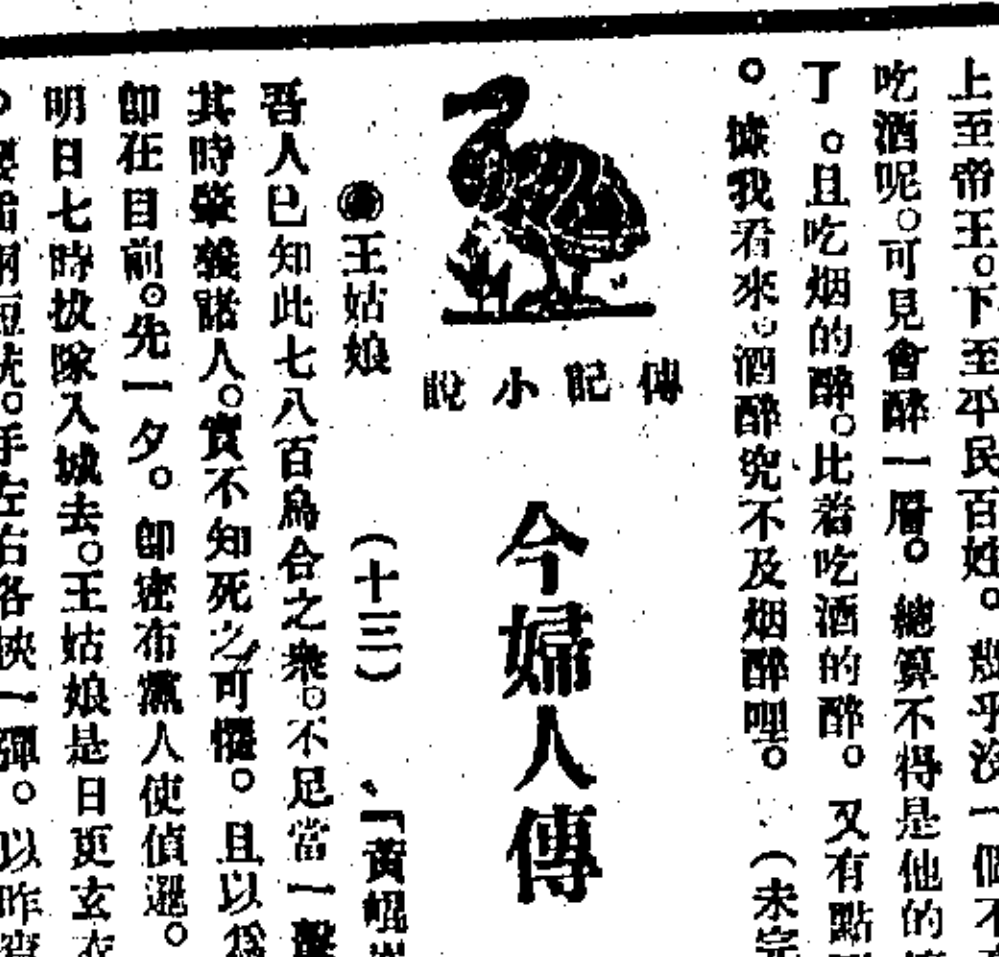 上至帝王。下至平民百姓。幾乎沒一個不
吃酒呢。可見會醉一層。總算不得是他的
了。且吃烟的醉。比着吃酒的醉。又有點
。據我看來。酒醉究不及烟醉哩。（未完
傳記小說
今婦人傳
◉王姑娘（十三）「黃崐
吾人已知此七八百烏合之衆。不足當一擊
其時肇義諸人。實不知死之可懼。且以爲
卽在目前。先一夕。卽密布黨人使偵邏。
明日七時拔隊入城去。王姑娘是日更玄衣
手左右各挾一彈。以昨